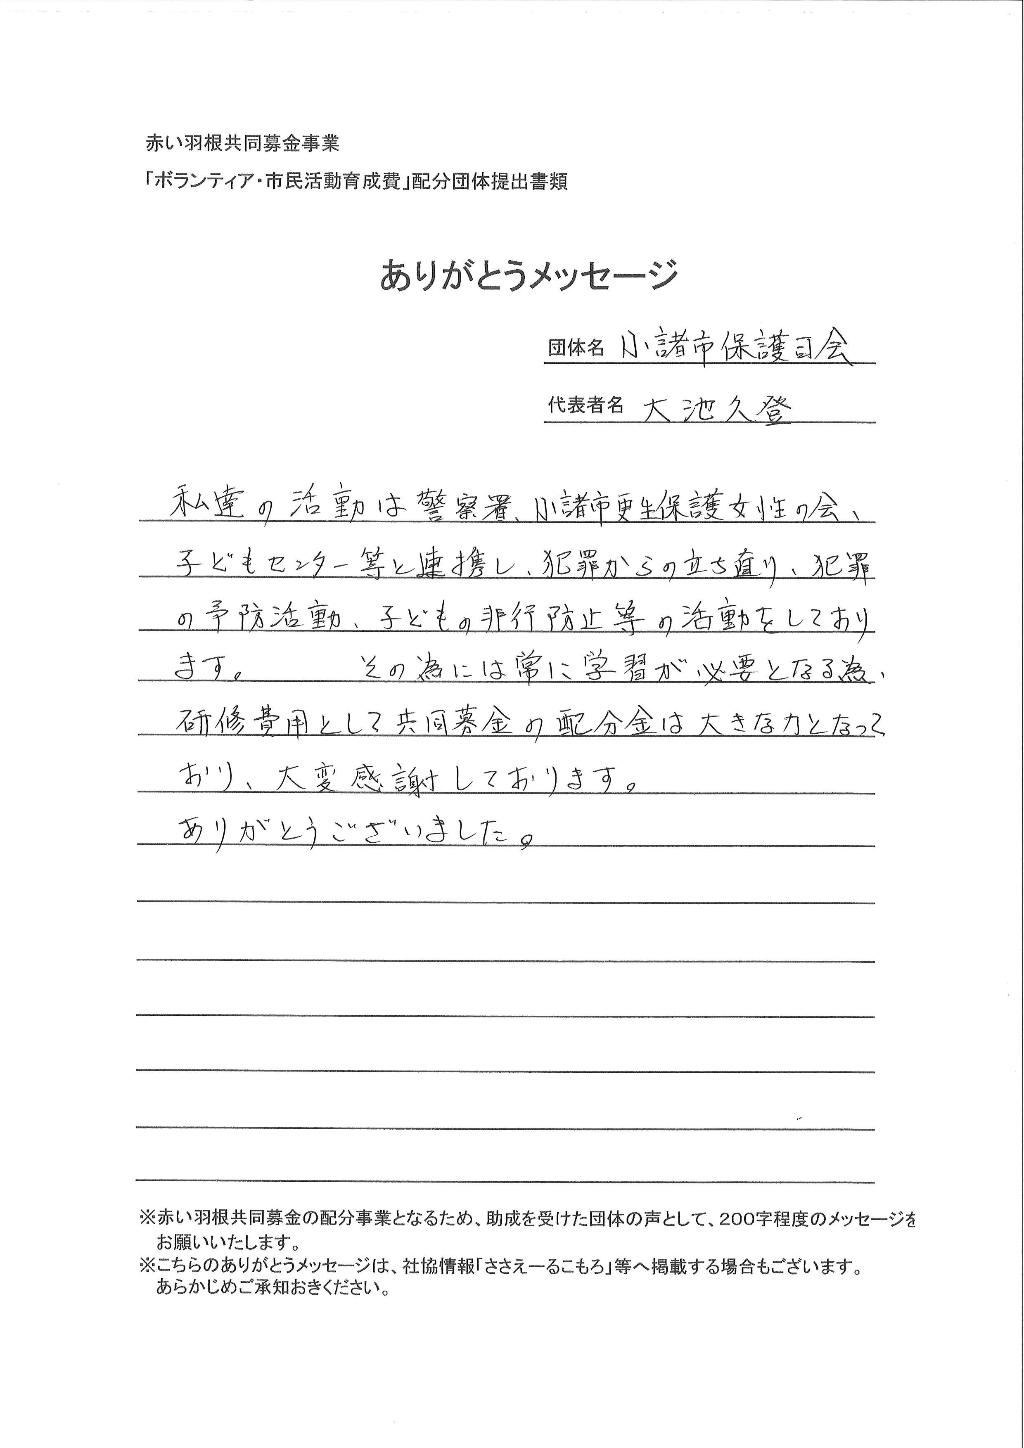 赤い羽根共同募金事業
「ボランティア・市民活動育成費」配分団体提出書類
ありがとうメッセージ
団体名 小諸市保護司会
代表者名 大池久登
私達の活動は警察署、小諸市更生保護女性の会、
子どもセンター等と連携し、犯罪からの立ち直り、犯罪
の予防活動、子どもの非行防止等の活動をしており
ます。 その為には常に学習が必要となる為、
研修費用として共同募金の配分金は大きな力となって
おり、大変感謝しております。
ありがとうございました。
※赤い羽根共同募金の配分事業となるため、助成を受けた団体の声として、200字程度のメッセージを
お願いいたします。
※こちらのありがとうメッセージは、社協情報「ささえーるこもろ」等へ掲載する場合もございます。
あらかじめご承知おきください。